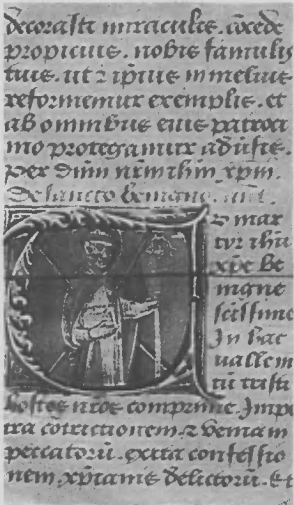 decorasti miraculis. cõcede
propicius. nobis famulis
tuis. ut ⁊ ipsius in melius
reformemur exemplis. et
ab omnibus eius patroci
nio protegamur aduersis.
per dñm nrm ihm xpm.
De sancto benigno. añ.
mar
tyr ihu
xpe be
nigne
scissime
In hac
uallem
tu tristi
hostes nros comprime. Impe
tra correctionem. ⁊ veniam
peccatorũ. extra confessio
nem. xptianis delictorũ. Et